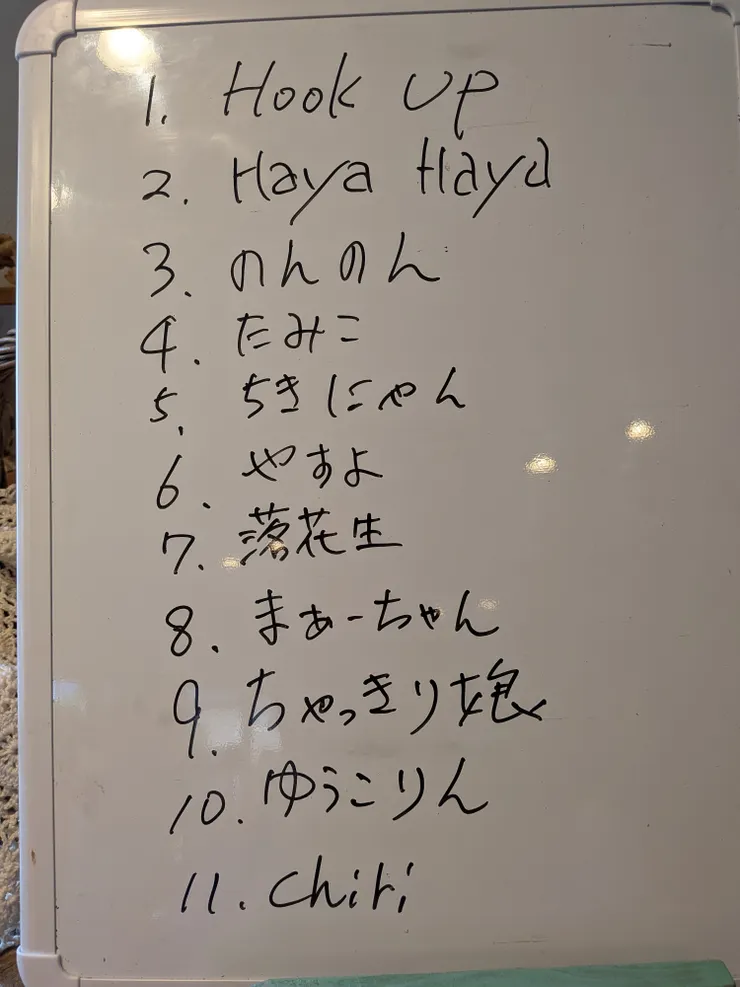 1. Hook up
2. Haya Haya
3. のんのん
4. たみこ
5. ちきにゃん
6. やすよ
7. 落花生
8. まぁーちゃん
9. ちゃっきり娘
10. ゆうこりん
11. Chiri